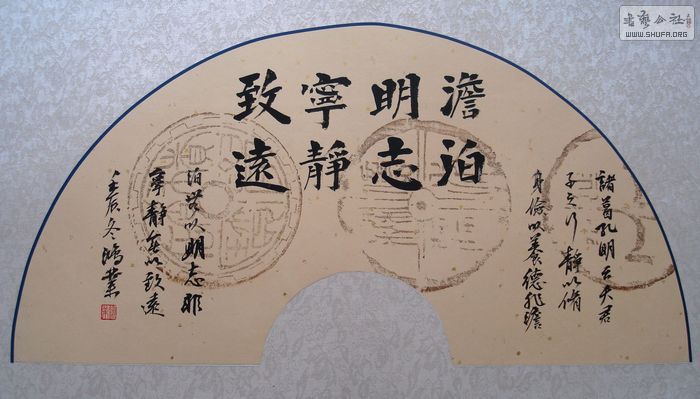 澹泊
明志
寧靜
致遠
諸葛孔明云夫君
子之行靜以脩
身儉以養德非澹
泊無以明志非
寧靜無以致遠
壬辰冬鴻業
書藝公社
WWW.SHUFA.ORG